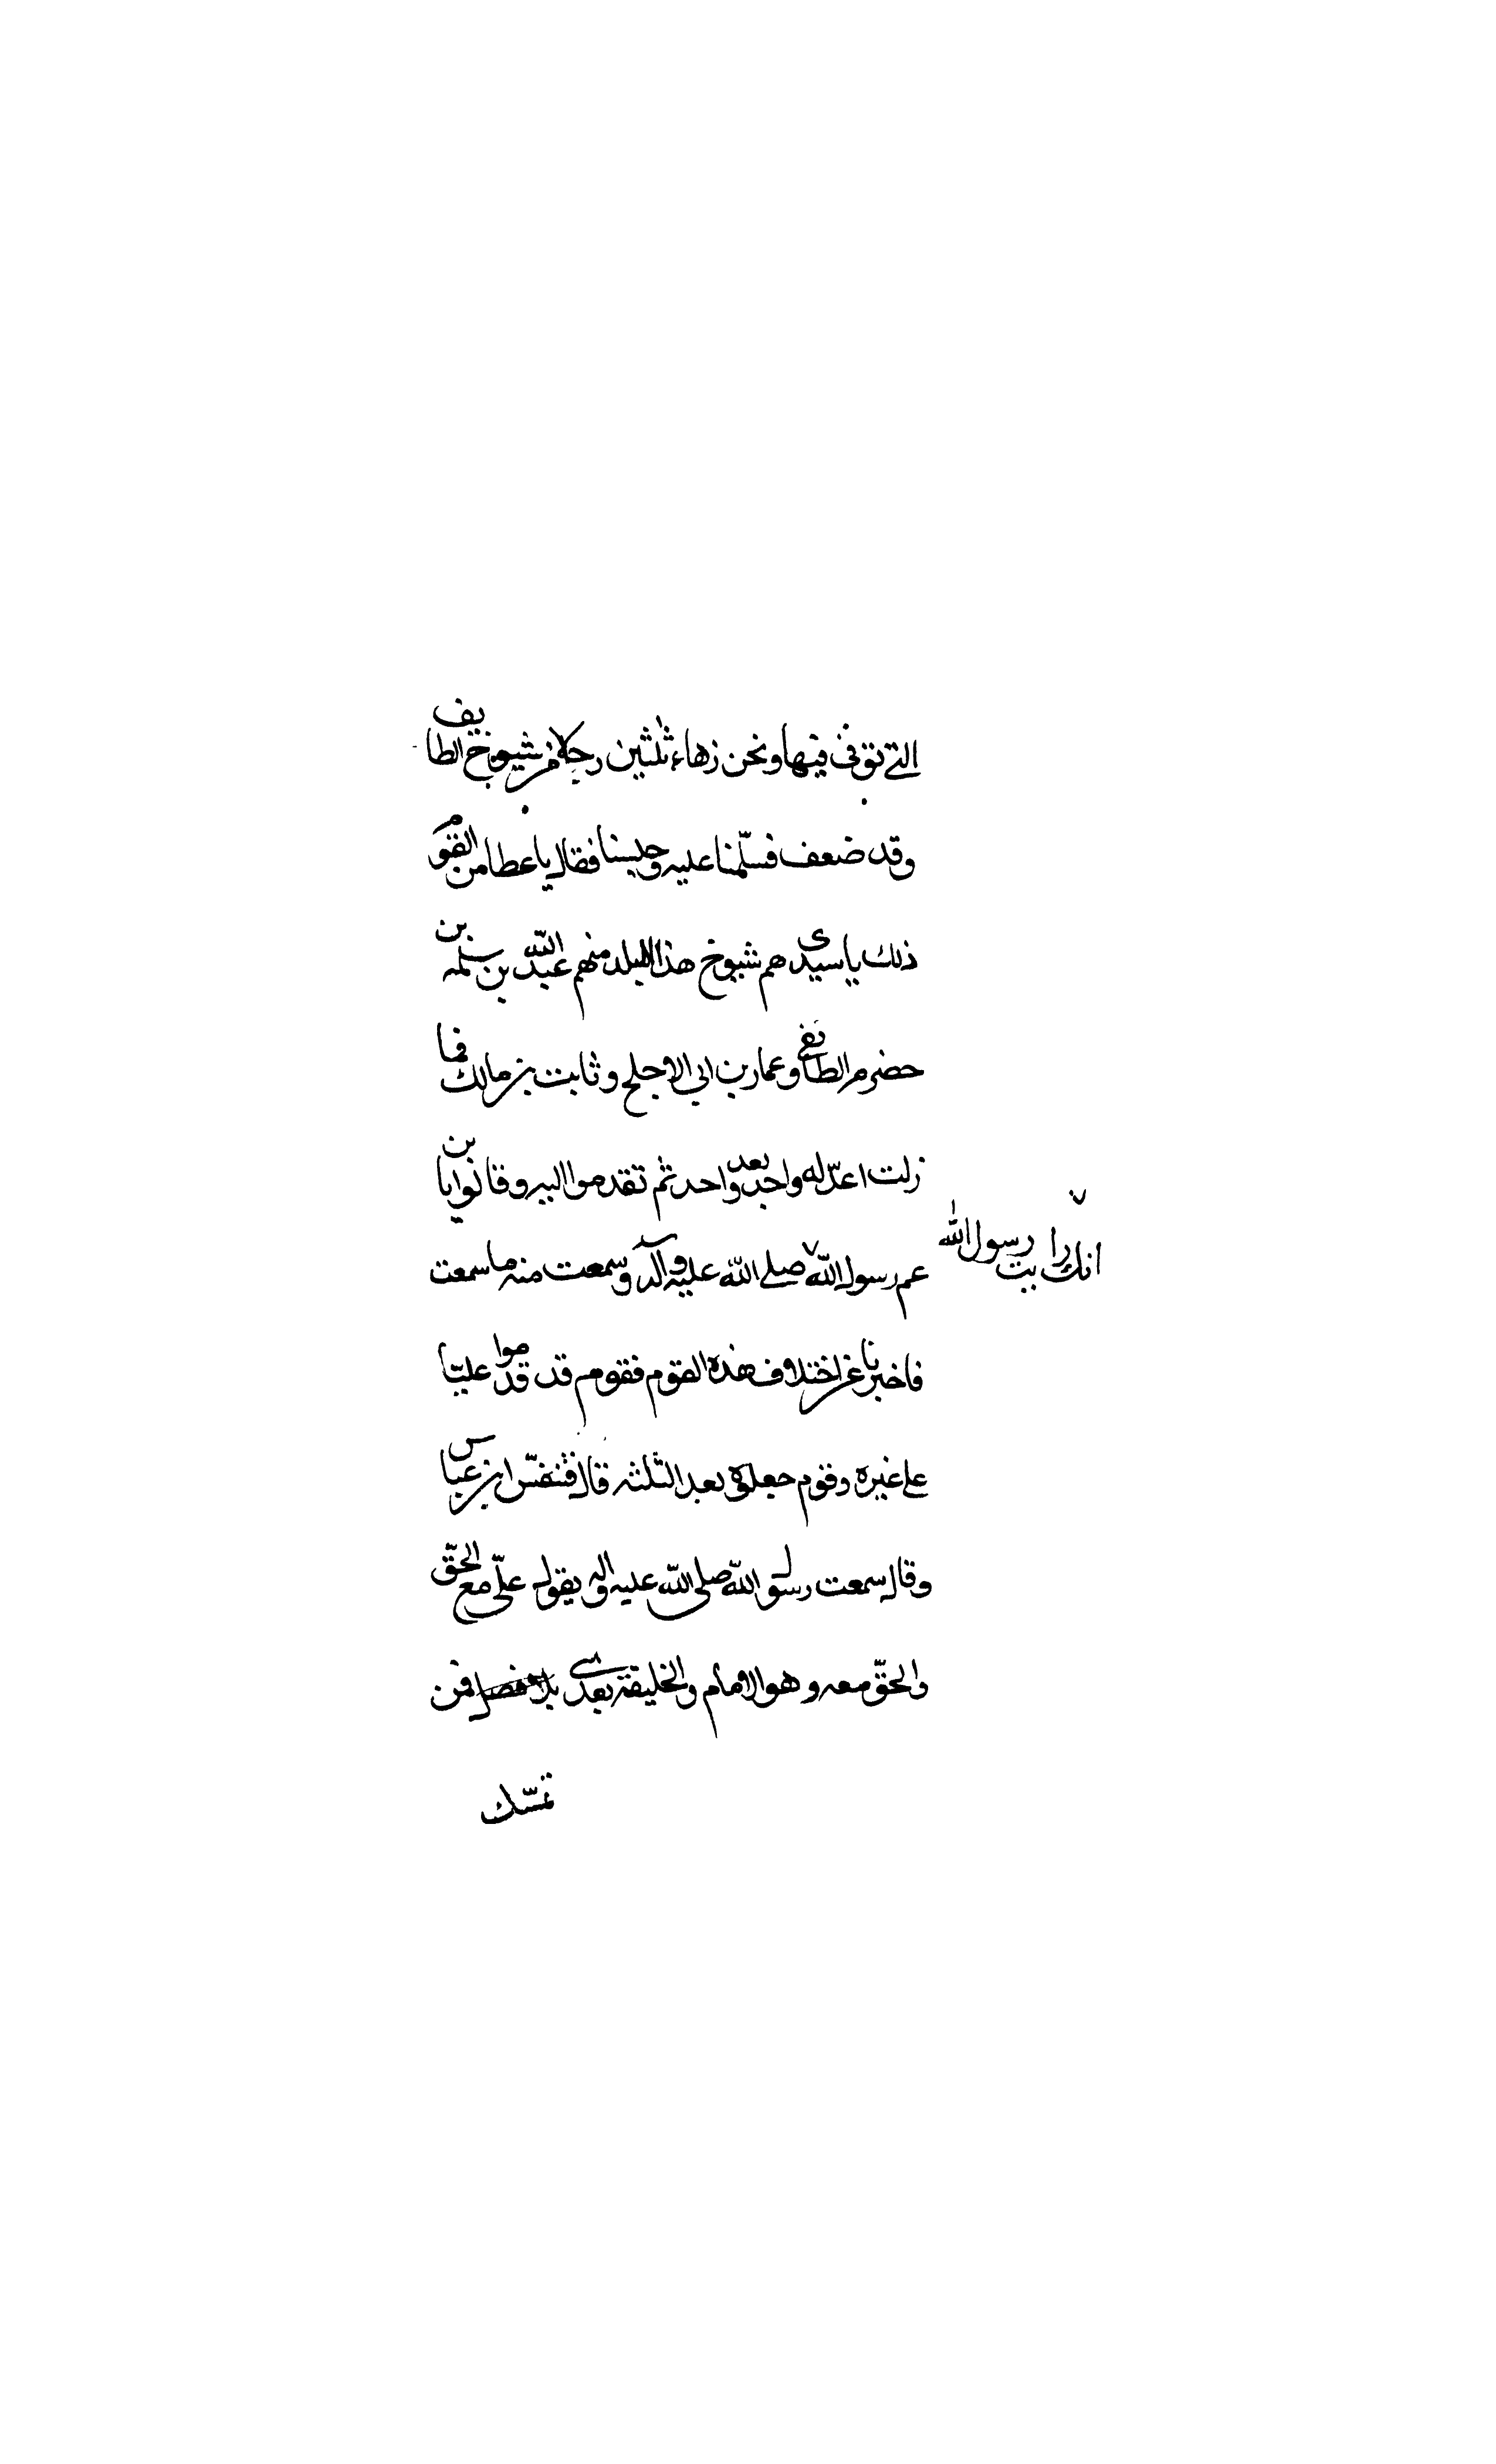 التي توفى فيها ونحن زهاء ثلثين رجلا من شيوخ الطايف
وقد ضعف فسلّمنا عليه وجلسنا فقال يا عطا من القوم
ذلك يا سيدى هم شيوخ هذا البلد منهم عبد اللّه بن سلمه بن
حضرم الطايفي وعمار بن ابي الاجلح وثابت بن مالك فما
زلت اعدّ له واحد بعد واحد ثم تقدموا اليه وقالوا يا بن
عم رسول اللّه صلى اللّه عليه وآله وسمعت منه ما سمعت
انك رايت رسول الله
فاخبرنا عن اختلاف هذه القوم فقوم قد قدموا عليّا
على غيره وقوم جعلوه بعد الثلثه قال فتنفّس ابن عباس
وقال سمعت رسول اللّه صلى اللّه عليه واله يقول علىّ مع الحقّ
والحقّ معه وهو الامام والخليفة بعدى بلا فصل فمن
تمسّك